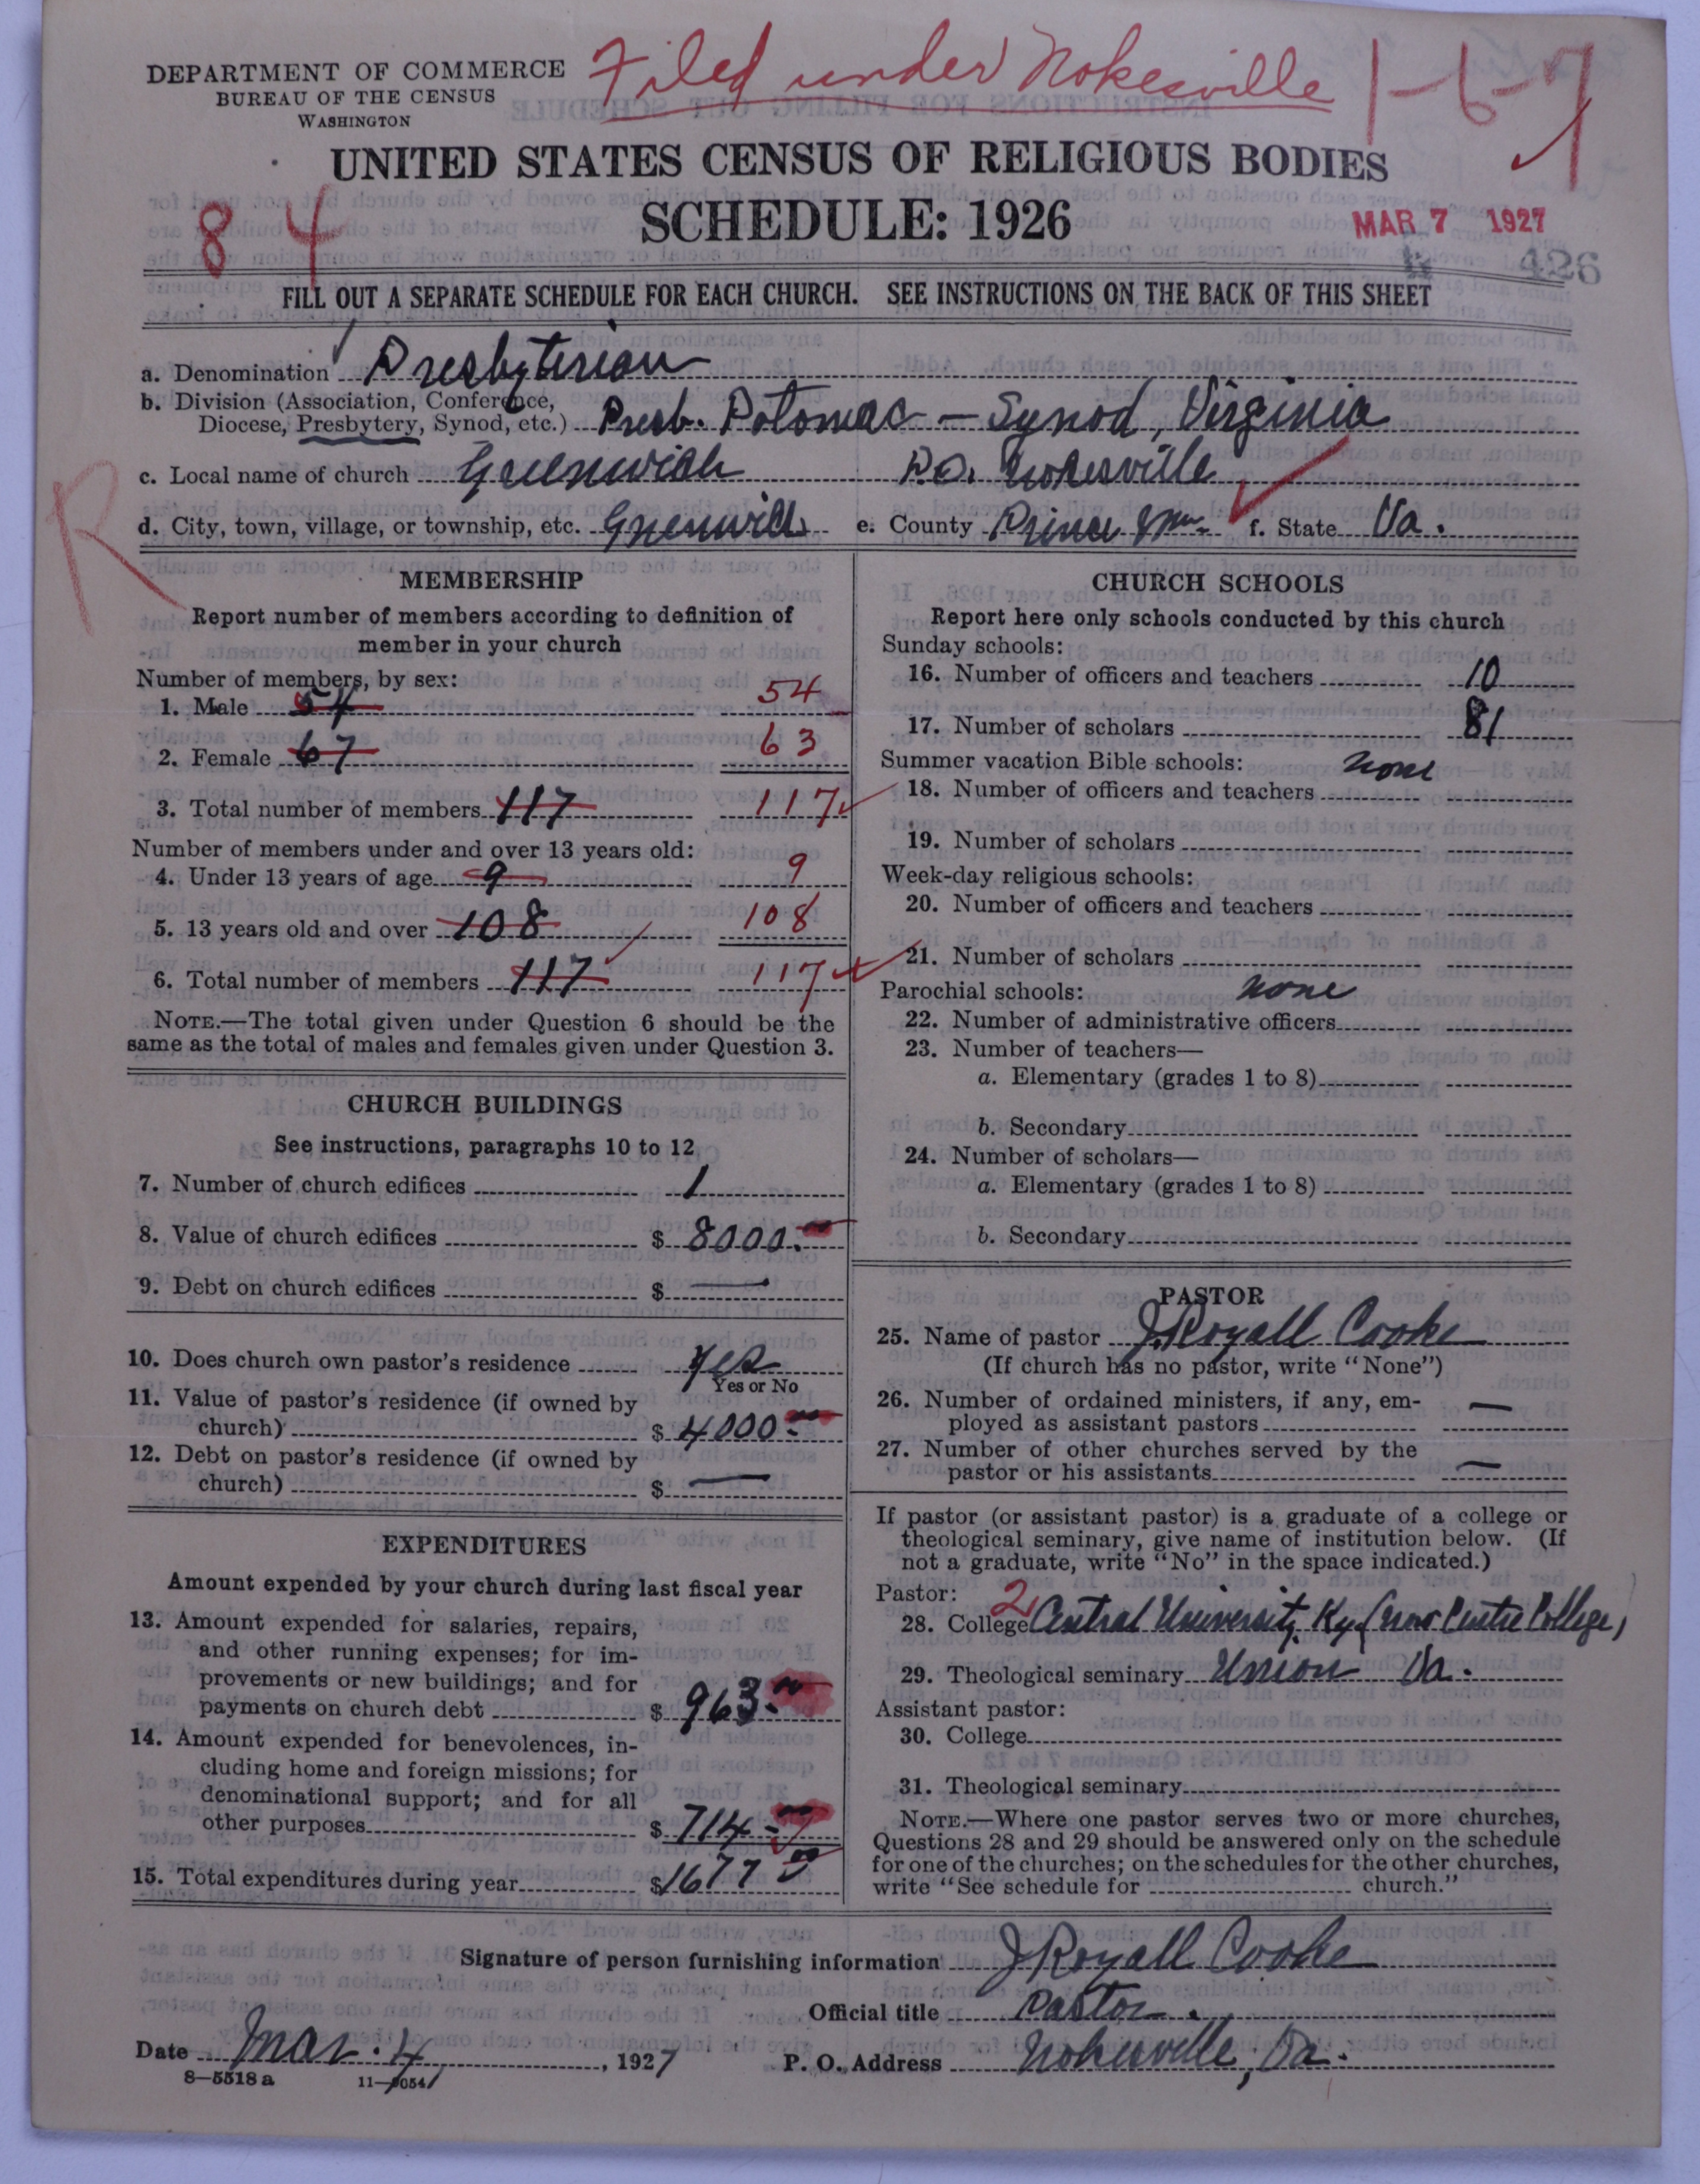 DEPARTMENT OF COMMERCE
BUREAU OF THE CENSUS
WASHINGTON
Filed under Nokesville 1-6-7
UNITED STATES CENSUS OF RELIGIOUS BODIES
SCHEDULE: 1926
84
MAR 7 1927
426
FILL OUT A SEPARATE SCHEDULE FOR EACH CHURCH. SEE INSTRUCTIONS ON THE BACK OF THIS SHEET
a. Denomination Presbyterian
b. Division (Association, Conference,
Diocese, Presbytery, Synod, etc.) Presb. Potomac - Synod, Virginia
c. Local name of church Greenwich P.O. Nokesville
d. City, town, village, or township, etc. Greenwich e. County Prince Wm. f. State Va.
R
MEMBERSHIP
Report number of members according to definition of
member in your church
Number of members, by sex:
1. Male 54 54
2. Female 67 63
3. Total number of members 117 117
Number of members under and over 13 years old:
4. Under 13 years of age 9 9
5. 13 years old and over 108 108
6. Total number of members 117 117
NOTE.—The total given under Question 6 should be the
same as the total of males and females given under Question 3.
CHURCH BUILDINGS
See instructions, paragraphs 10 to 12
7. Number of church edifices 1
8. Value of church edifices $ 8000.00
9. Debt on church edifices $ —
10. Does church own pastor's residence Yes
Yes or No
11. Value of pastor's residence (if owned by
church) $ 4000.00
12. Debt on pastor's residence (if owned by
church) $ —
EXPENDITURES
Amount expended by your church during last fiscal year
13. Amount expended for salaries, repairs,
and other running expenses; for im-
provements or new buildings; and for
payments on church debt $ 963.00
14. Amount expended for benevolences, in-
cluding home and foreign missions; for
denominational support; and for all
other purposes $ 714
15. Total expenditures during year $ 1677 00
CHURCH SCHOOLS
Report here only schools conducted by this church
Sunday schools:
16. Number of officers and teachers 10
17. Number of scholars 81
Summer vacation Bible schools: none
18. Number of officers and teachers
19. Number of scholars
Week-day religious schools:
20. Number of officers and teachers
21. Number of scholars
Parochial schools: none
22. Number of administrative officers
23. Number of teachers—
a. Elementary (grades 1 to 8)
b. Secondary
24. Number of scholars—
a. Elementary (grades 1 to 8)
b. Secondary
PASTOR
25. Name of pastor J Royall Cooke
(If church has no pastor, write "None")
26. Number of ordained ministers, if any, em-
ployed as assistant pastors —
27. Number of other churches served by the
pastor or his assistants —
If pastor (or assistant pastor) is a graduate of a college or
theological seminary, give name of institution below. (If
not a graduate, write "No" in the space indicated.)
Pastor: 2
28. College Central University, Ky (now Centre College)
29. Theological seminary Union Va.
Assistant pastor:
30. College
31. Theological seminary
NOTE.—Where one pastor serves two or more churches,
Questions 28 and 29 should be answered only on the schedule
for one of the churches; on the schedules for the other churches,
write "See schedule for church."
Signature of person furnishing information J Royall Cooke
Official title Pastor.
Date Mar. 4, 1927 P. O. Address Nokesville, Va.
8—5518 a 11—9054